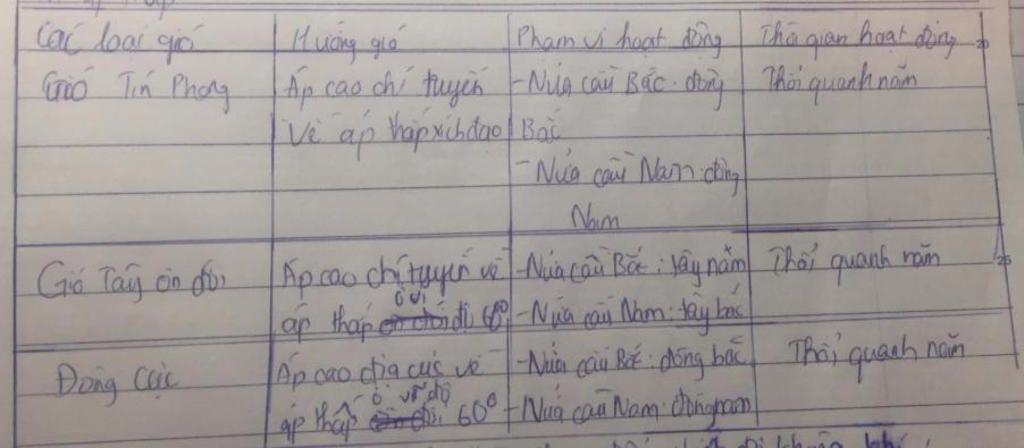 Các loại gió Hướng gió Phạm vi hoạt động Thời gian hoạt động
Gió Tín Phong Áp cao chí tuyến -Nửa cầu Bắc: đông Thổi quanh năm
Về áp thấp xích đạo Bắc
-Nửa cầu Nam: đông
Nam
Gió Tây ôn đới Áp cao chí tuyến về -Nửa cầu Bắc: tây nam Thổi quanh năm
áp thấp ở vĩ độ 60° -Nửa cầu Nam: tây bắc
Đông Cực Áp cao địa cực về -Nửa cầu Bắc: đông bắc Thổi quanh năm
áp thấp ở vĩ độ 60° -Nửa cầu Nam: đông nam